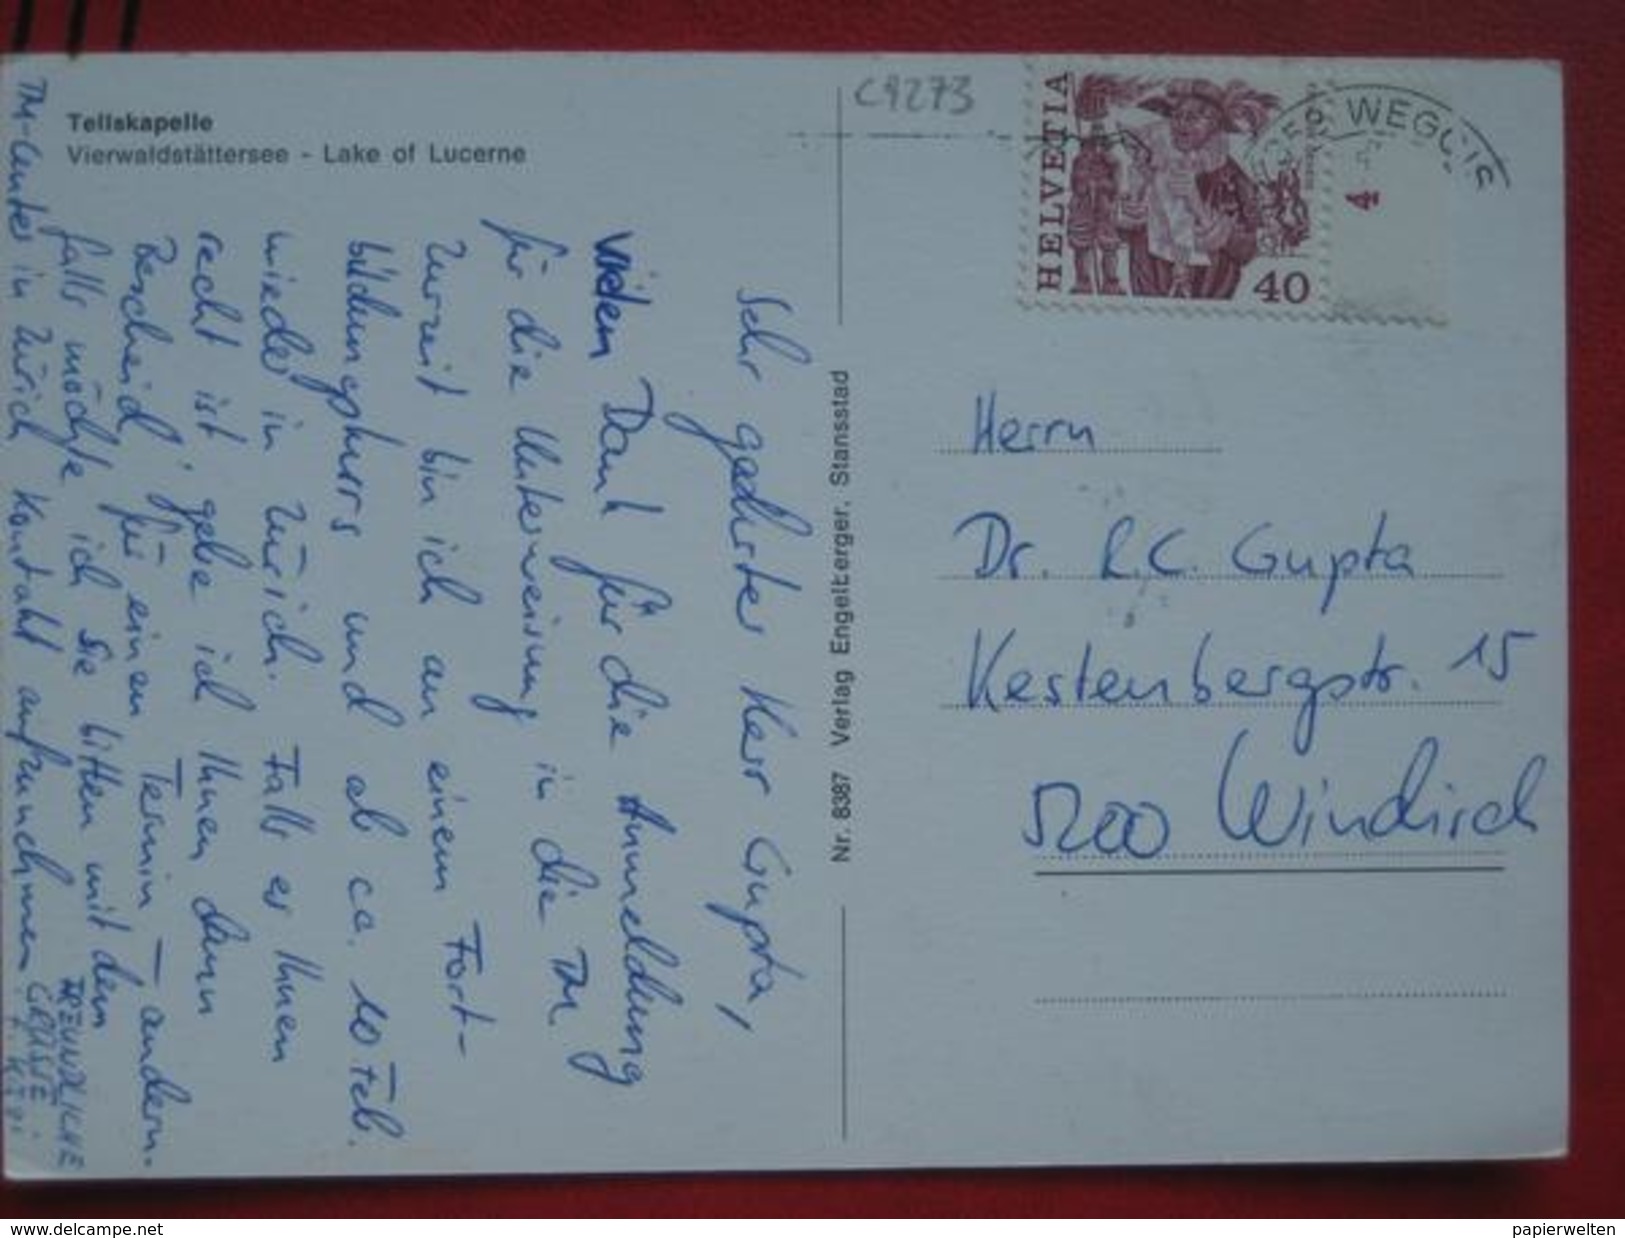 Tellskapelle
Vierwaldstättersee - Lake of Lucerne
C9273
HELVETIA
40
WEGGIS
4
Nr. 8387 Verlag Engelberger, Stansstad
Sehr geehrter Herr Gupta,
Vielen Dank für die Anmeldung
für die Unterweisung in die TM
Zurzeit bin ich an einem Fort-
bildungskurs und ab ca. 10 Feb.
wieder in Zürich. Falls es Ihnen
recht ist, gebe ich Ihnen dann
Bescheid für einen Termin, andern-
falls möchte ich Sie bitten mit dem
TM-Center in Zürich Kontakt aufzunehmen
FREUNDLICHE
GRÜSSE
Herrn
Dr. R.C. Gupta
Kestenbergstr. 15
5200 Windisch
www.delcampe.net
papierwelten